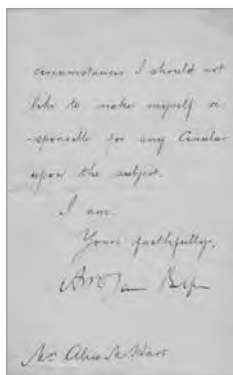 circumstances I should not
like to make myself re-
-sponsible for any Circular
upon the subject.
I am
Yours faithfully,
Mrs Alice M Hart